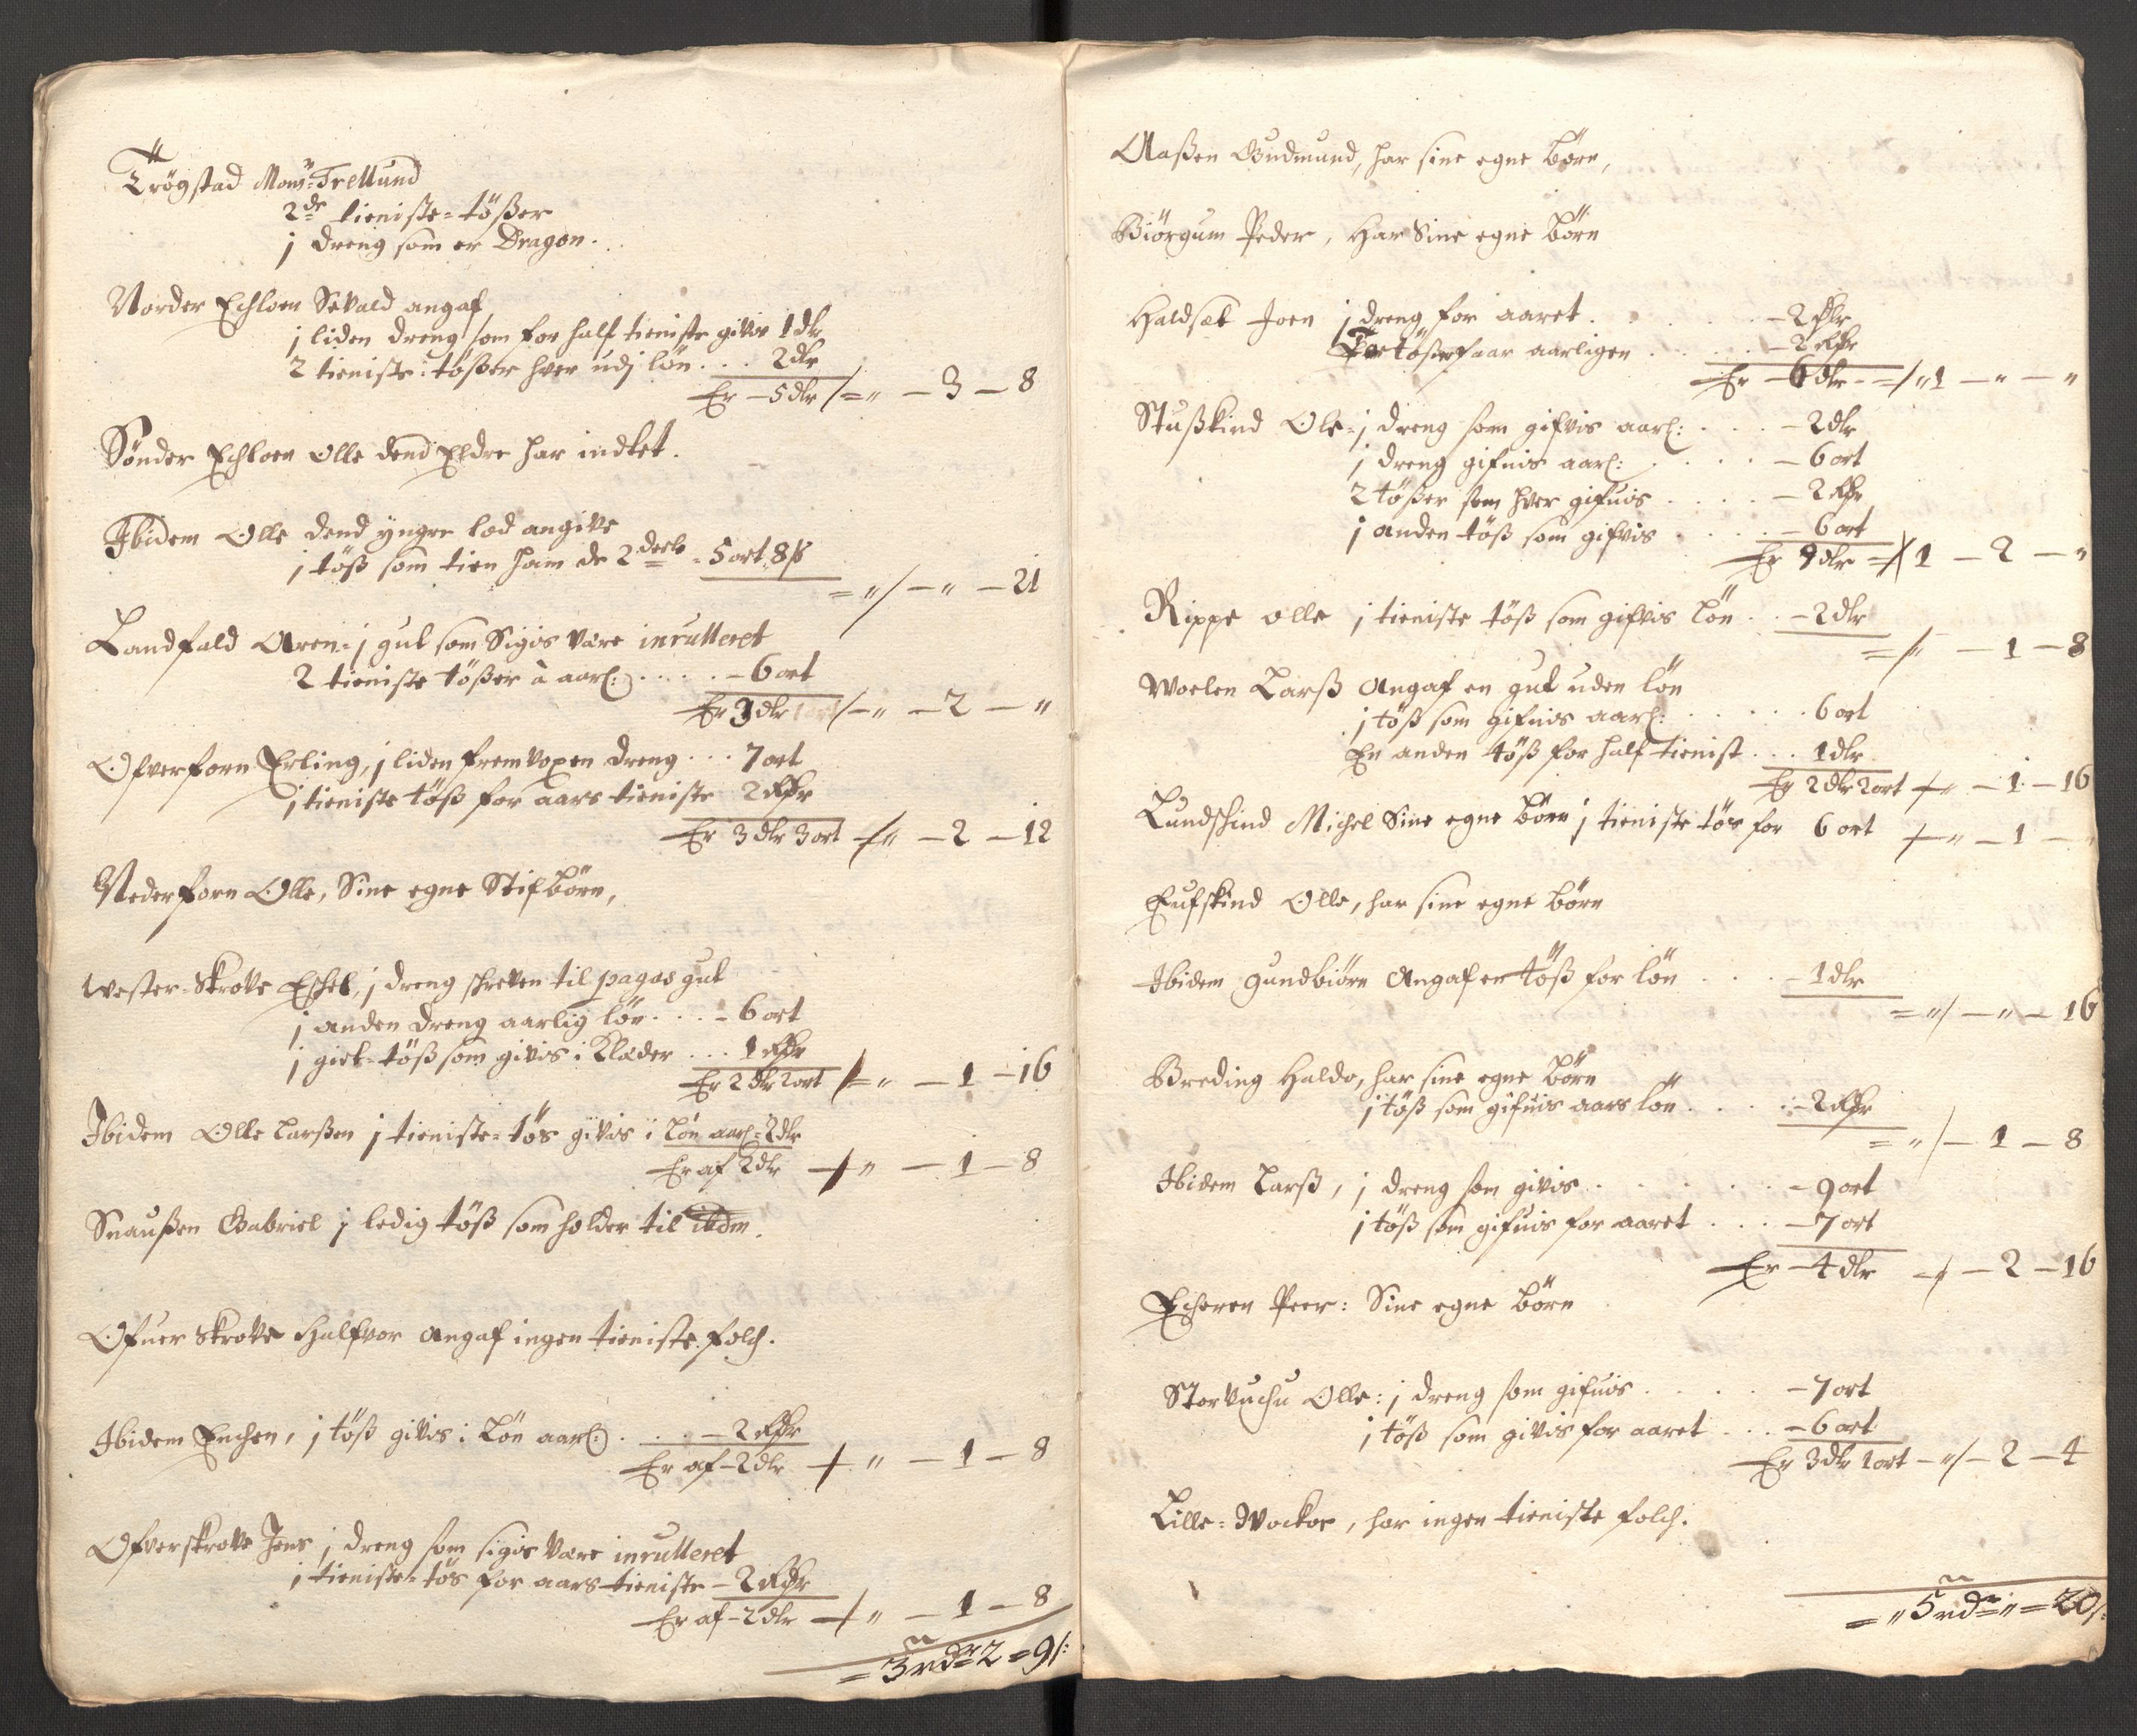 Trögstad Mons: Frellund
2de tieniste-tößer
j dreng som er Dragon.
Norder Echloen Sivald angaf
j liden dreng som for half tieniste givis 1 dlr
2 tieniste-tößer hver udj lön . . . 2 dlr
Er – 5 dlr /=„ – 3 – 8
Sönder Echloen Olle dend Eldre har indtet.
Ibidem Olle dend yngre lod angive
j töß som tien ham de 2 deele - 5 ort 8 ß
= „/ – „ – 21
Landfald Aren: j gut som Sigis være inrulleret
2 tieniste tößer à aarl: . . . . – 6 ort
Er 3 dlr /– „ – 2 – „
Ofverforn Erling, j liden fremvoxen dreng . . . 7 ort
j tieniste töß for aars tieniste 2 Rdr
Er 3 dlr 3 ort /„ – 2 – 12
Nederforn Olle, Sine egne Stifbörn,
Wester-Skrove Eschel, j dreng schreven til pagas gut
j anden dreng aarlig lön . . . – 6 ort
j giet-töß som givis i Klæder . . . 1 Rdr
Er 2 dlr 2 ort /=„ – 1 – 16
Ibidem Olle Larßen j tieniste-tös givis i Lön aarl: 2 dlr
Er af 2 dlr /„ – 1 – 8
Snaußen Gabriel j ledig töß som holder til ibdm.
Ofuer Skrove Halfvor angaf ingen tieniste folch.
Ibidem Enchen, j töß givis i Lön aarl: . . . – 2 Rdr
Er af – 2 dlr / „ – 1 – 8
Ofverskrove Jens j dreng som sigis være inrulleret
j tieniste-tös for aars tieniste – 2 Rdr
Er af – 2 dlr / „ – 1 – 8
= 3 rdr 2 = 9 ß:
Aaßen Gudmund, har sine egne börn,
Biörgum Peder, Har Sine egne Börn
Haldset Joen j dreng for aaret . . . . – 2 dlr
tößer faar aarligen . . . . – 2 Rdr
Er – 6 dlr – =/„ 1 – „ – „
Stußkind Ole: j dreng som gifvis aarl: . . . – 2 dlr
j dreng gifuis aarl: . . . . – 6 ort
2 tößer som hver gifuis . . . . – 2 Rdr
j anden töß som gifvis . . . . – 6 ort
Er 9 dlr =/ 1 – 2 – „
Rippe olle j tieniste töß som gifvis Lön . . – 2 dlr
=/„ – 1 – 8
Woelen Larß Angaf en gut uden lön
j töß som gifuis aarl: . . . . 6 ort
En anden töß for half tienist . . . 1 dlr
Er 2 dlr 2 ort /„ – 1 – 16
Lundskind Michel Sine egne Börn j tieniste tös for 6 ort /„ – 1 – „
Eufskind Olle, har sine egne börn
Ibidem Gundbiörn Angaf en töß for lön . . . – 1 dlr
= „/ – „ – 16
Breding Haldo, har sine egne Börn
j töß som gifuis aars lön . . . . – 2 Rdr
= „/ – 1 – 8
Ibidem Larß, j dreng som givis . . . . . – 9 ort
j töß som gifuis for aaret . . . – 7 ort
Er – 4 dlr / – 2 – 16
Echeren Peer: Sine egne börn
Storvuchu Olle: j dreng som gifuis . . . . – 7 ort
j töß som givis for aaret . . . – 6 ort
Er 3 dlr 1 ort – „/ – 2 – 4
Lille-Wocker, har ingen tieniste folch.
= „ 5 rdr „ = 20 ß: